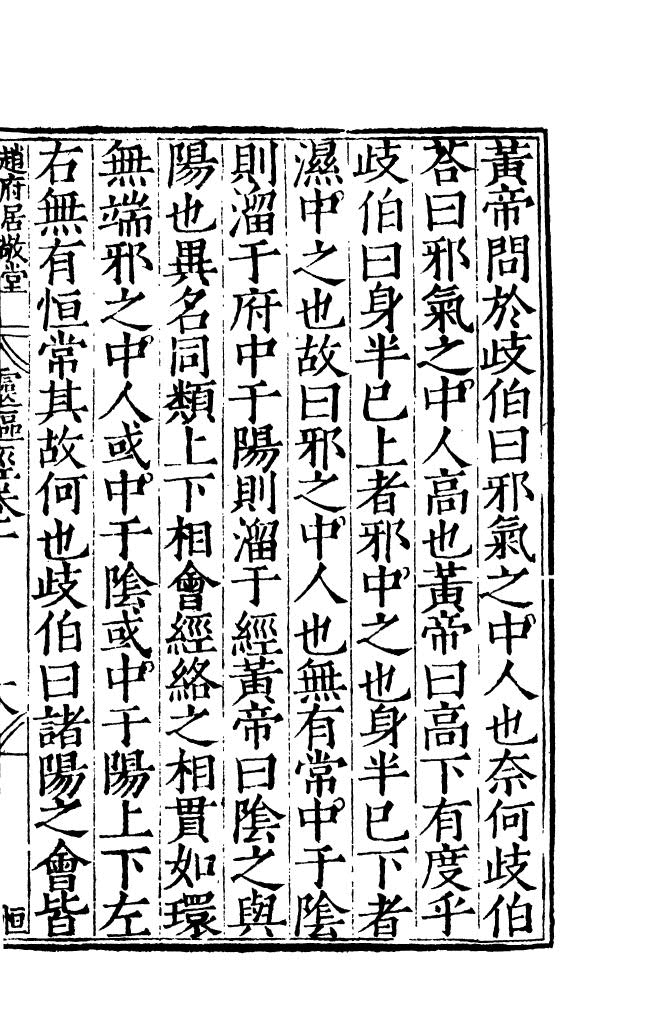 黃帝問於歧伯曰邪氣之中人也奈何歧伯
荅曰邪氣之中人高也黃帝曰高下有度乎
歧伯曰身半已上者邪中之也身半已下者
濕中之也故曰邪之中人也無有常中于陰
則溜于府中于陽則溜于經黃帝曰陰之與
陽也異名同類上下相會經絡之相貫如環
無端邪之中人或中于陰或中于陽上下左
右無有恒常其故何也歧伯曰諸陽之會皆
趙府居敬堂
恒